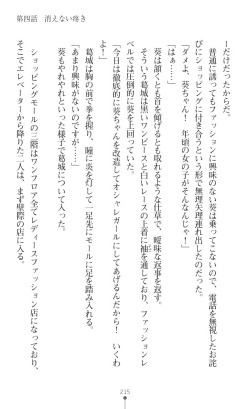 第四話　消えない疼き
ーだけだったからだ。
　普通に誘ってもファッションに興味のない葵は乗ってこないので、電話を無視したお詫
びにショッピングに付き合うという形で無理矢理連れ出したのだった。
「ダメよ、葵ちゃん！　年頃の女の子がそんなんじゃ！」
「はぁ……」
　葵は頷くとも首を傾げるとも取れるような仕草で、曖昧な返事を返す。
　そういう葛城は黒いワンピースと白いレースの上着に袖を通しており、ファッションレ
ベルでは圧倒的に葵を上回っていた。
「今日は徹底的に葵ちゃんを改造してオシャレガールにしてあげるんだから！　いくわよ！」
　葛城は胸の前で拳を握り、瞳に炎を灯して一足先にモールに足を踏み入れる。
「あまり興味がないのですが……」
　葵もやれやれといった様子で葛城についていった。
　ショッピングモールの三階はワンフロア全てレディースファッション店になっており、
そこでエレベーターから降りた二人は、まず壁際の店に入る。
215